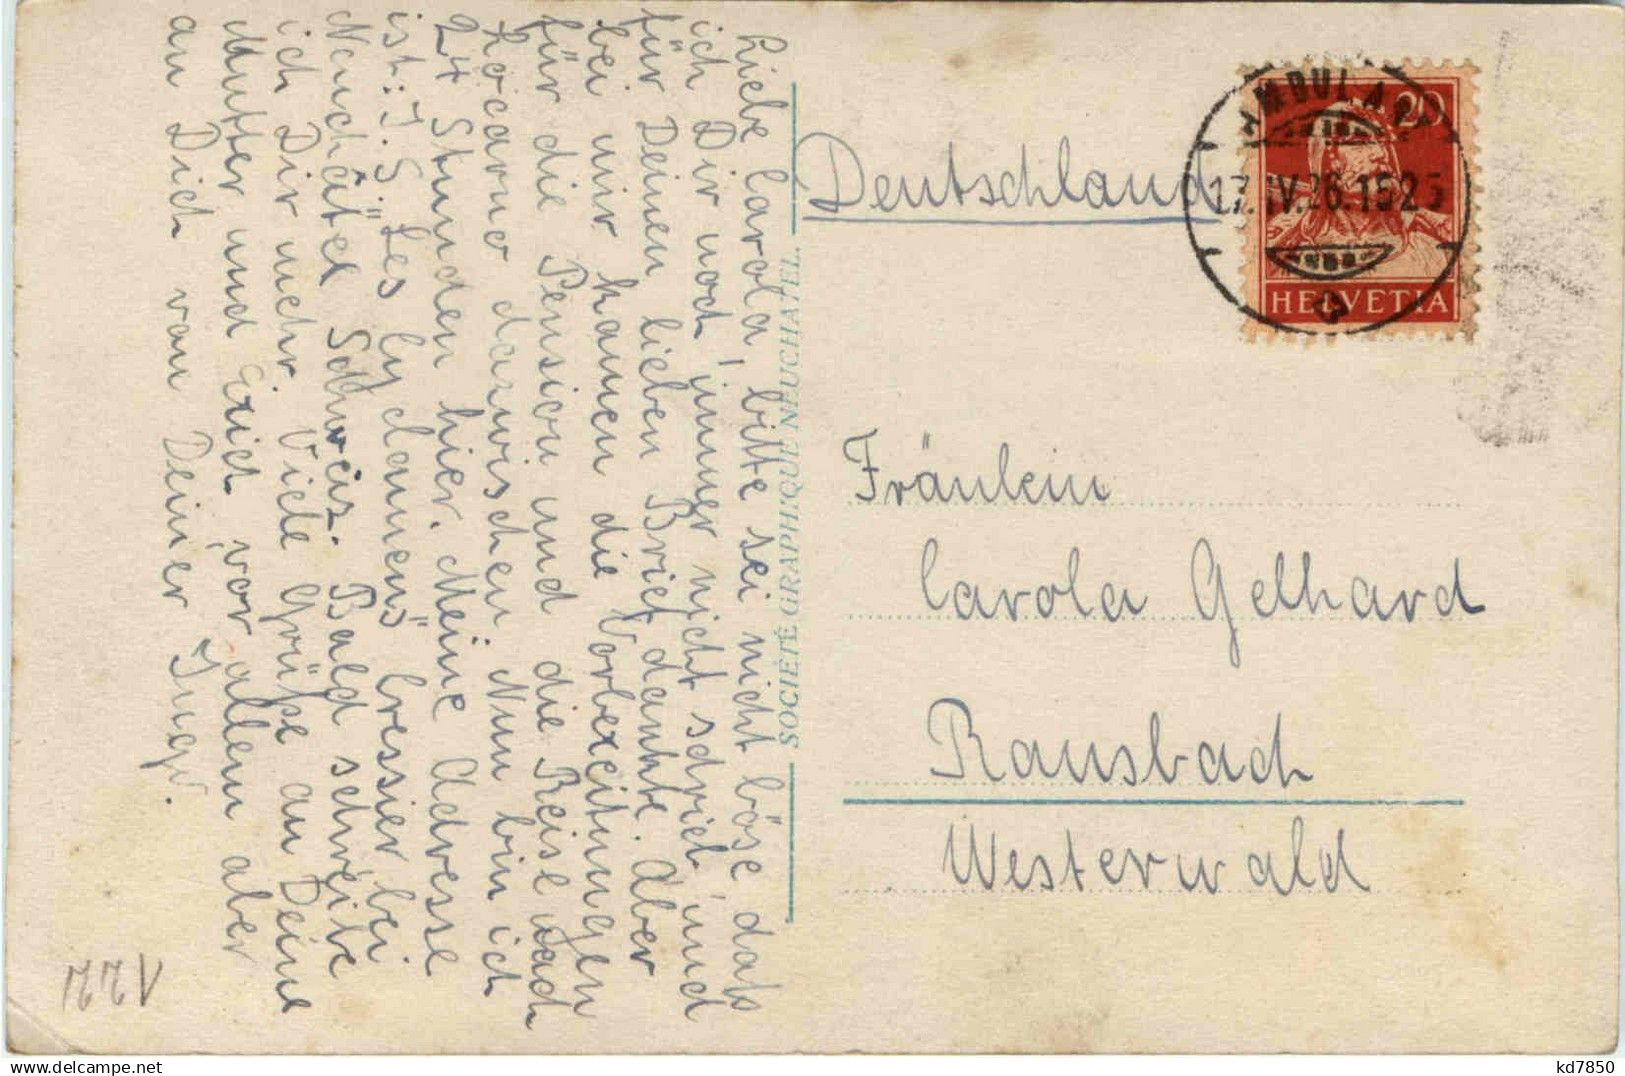 Liebe Carola, bitte sei nicht böse, daß
ich Dir noch immer nicht schrieb und
für Deinen lieben Brief dankte. Aber
bei mir kamen die Vorbereitungen
für die Pension und die Reise nach
Locarno dazwischen. Nun bin ich
24 Stunden hier. Meine Adresse
ist: I. S. "Les Cyclamens" Cressier bei
Neuchâtel Schweiz. Bald schreibe
ich Dir mehr. Viele Grüße an Deine
Mutter und Erich, vor allem aber
an Dich von Deiner Inge.
SOCIÉTÉ GRAPHIQUE NEUCHATEL.
Deutschland
20
HELVETIA
AMBULANT
17.IV.26.1525
Fräulein
Carola Gelhard
Ransbach
Westerwald
kd7850